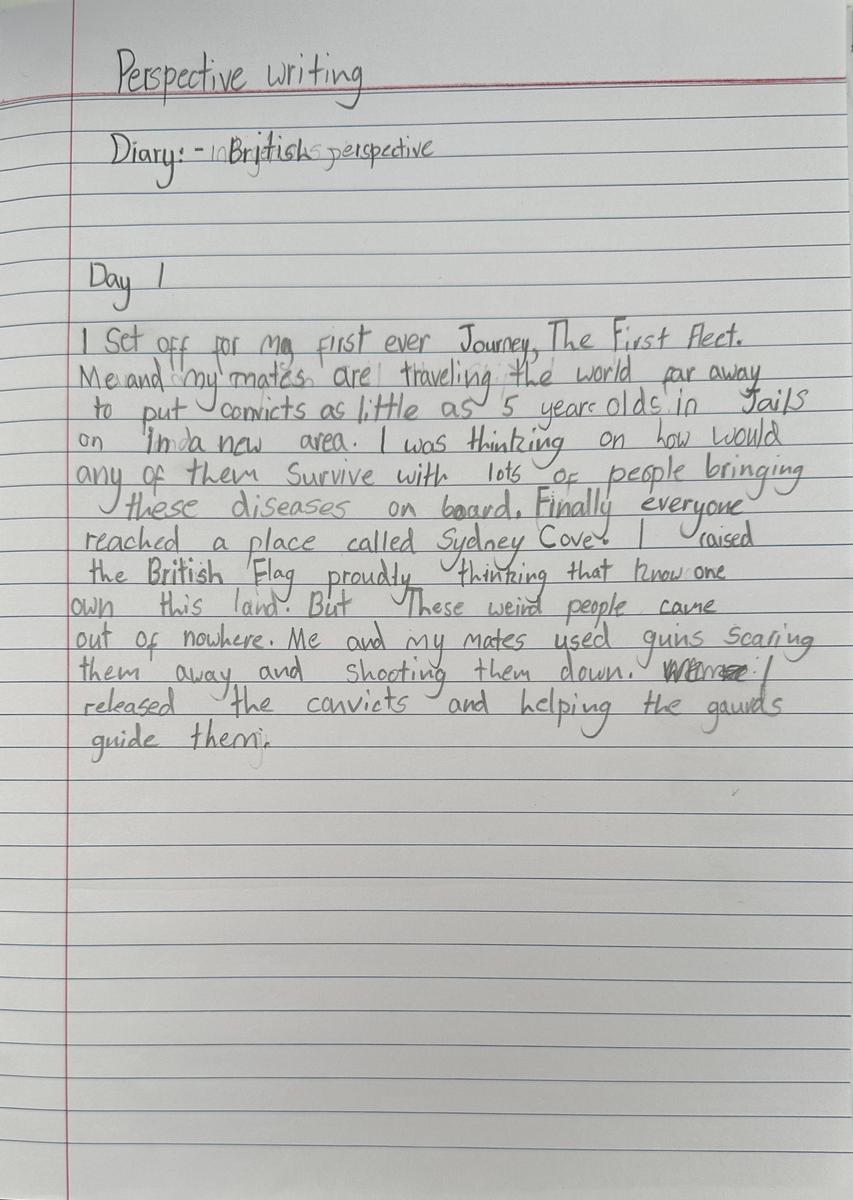 Perspective writing
Diary: - in British perspective
Day 1
I Set off for my first ever Journey, The First fleet.
Me and my mates are traveling the world far away
to put convicts as little as 5 years olds in Jails
on a new area. I was thinking on how would
any of them Survive with lots of people bringing
these diseases on board. Finally everyone
reached a place called Sydney Cove. I raised
the British Flag proudly thinking that know one
own this land. But These weird people came
out of nowhere. Me and my mates used guns scaring
them away and shooting them down. I
released the convicts and helping the gaurds
guide them.